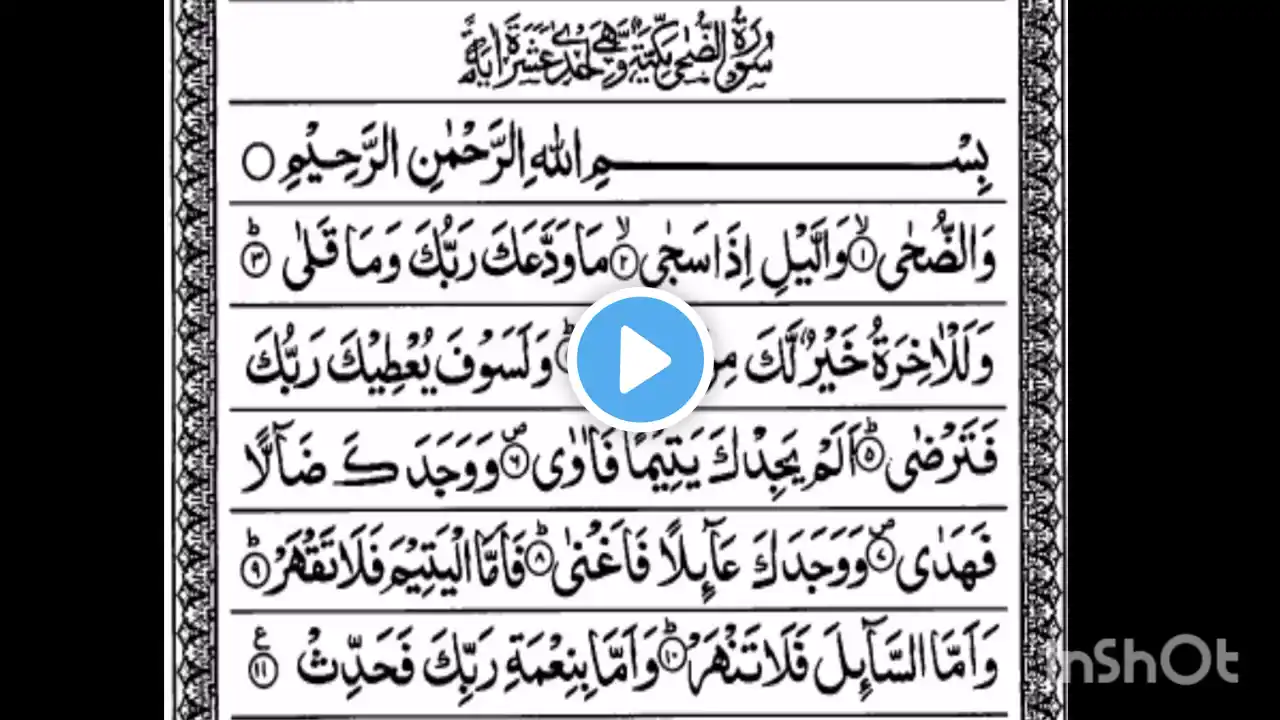 سُوْرَةُ الضُّحٰى مَكِّيَّةٌ وَّهِيَ اِحْدٰى عَشْرَةَ اٰيَةً
بِسْمِ اللهِ الرَّحْمٰنِ الرَّحِيْمِ
وَالضُّحٰى ۙ‏﴿۱﴾ وَالَّيْلِ اِذَا سَجٰى ۙ‏﴿۲﴾ مَا وَدَّعَكَ رَبُّكَ وَمَا قَلٰى ؕ‏﴿۳﴾
وَلَلْاٰخِرَةُ خَيْرٌ لَّكَ مِنَ وَلَسَوْفَ يُعْطِيْكَ رَبُّكَ
فَتَرْضٰى ؕ‏﴿۵﴾ اَلَمْ يَجِدْكَ يَتِيْمًا فَاٰوٰى ۖ‏﴿۶﴾ وَوَجَدَكَ ضَآلًّا
فَهَدٰى ۖ‏﴿۷﴾ وَوَجَدَكَ عَآئِلًا فَاَغْنٰى ؕ‏﴿۸﴾ فَاَمَّا الْيَتِيْمَ فَلَا تَقْهَرْ ؕ‏﴿۹﴾
وَاَمَّا السَّآئِلَ فَلَا تَنْهَرْ ؕ‏﴿۱۰﴾ وَاَمَّا بِنِعْمَةِ رَبِّكَ فَحَدِّثْ ﴿۱۱﴾ ع
InShOt